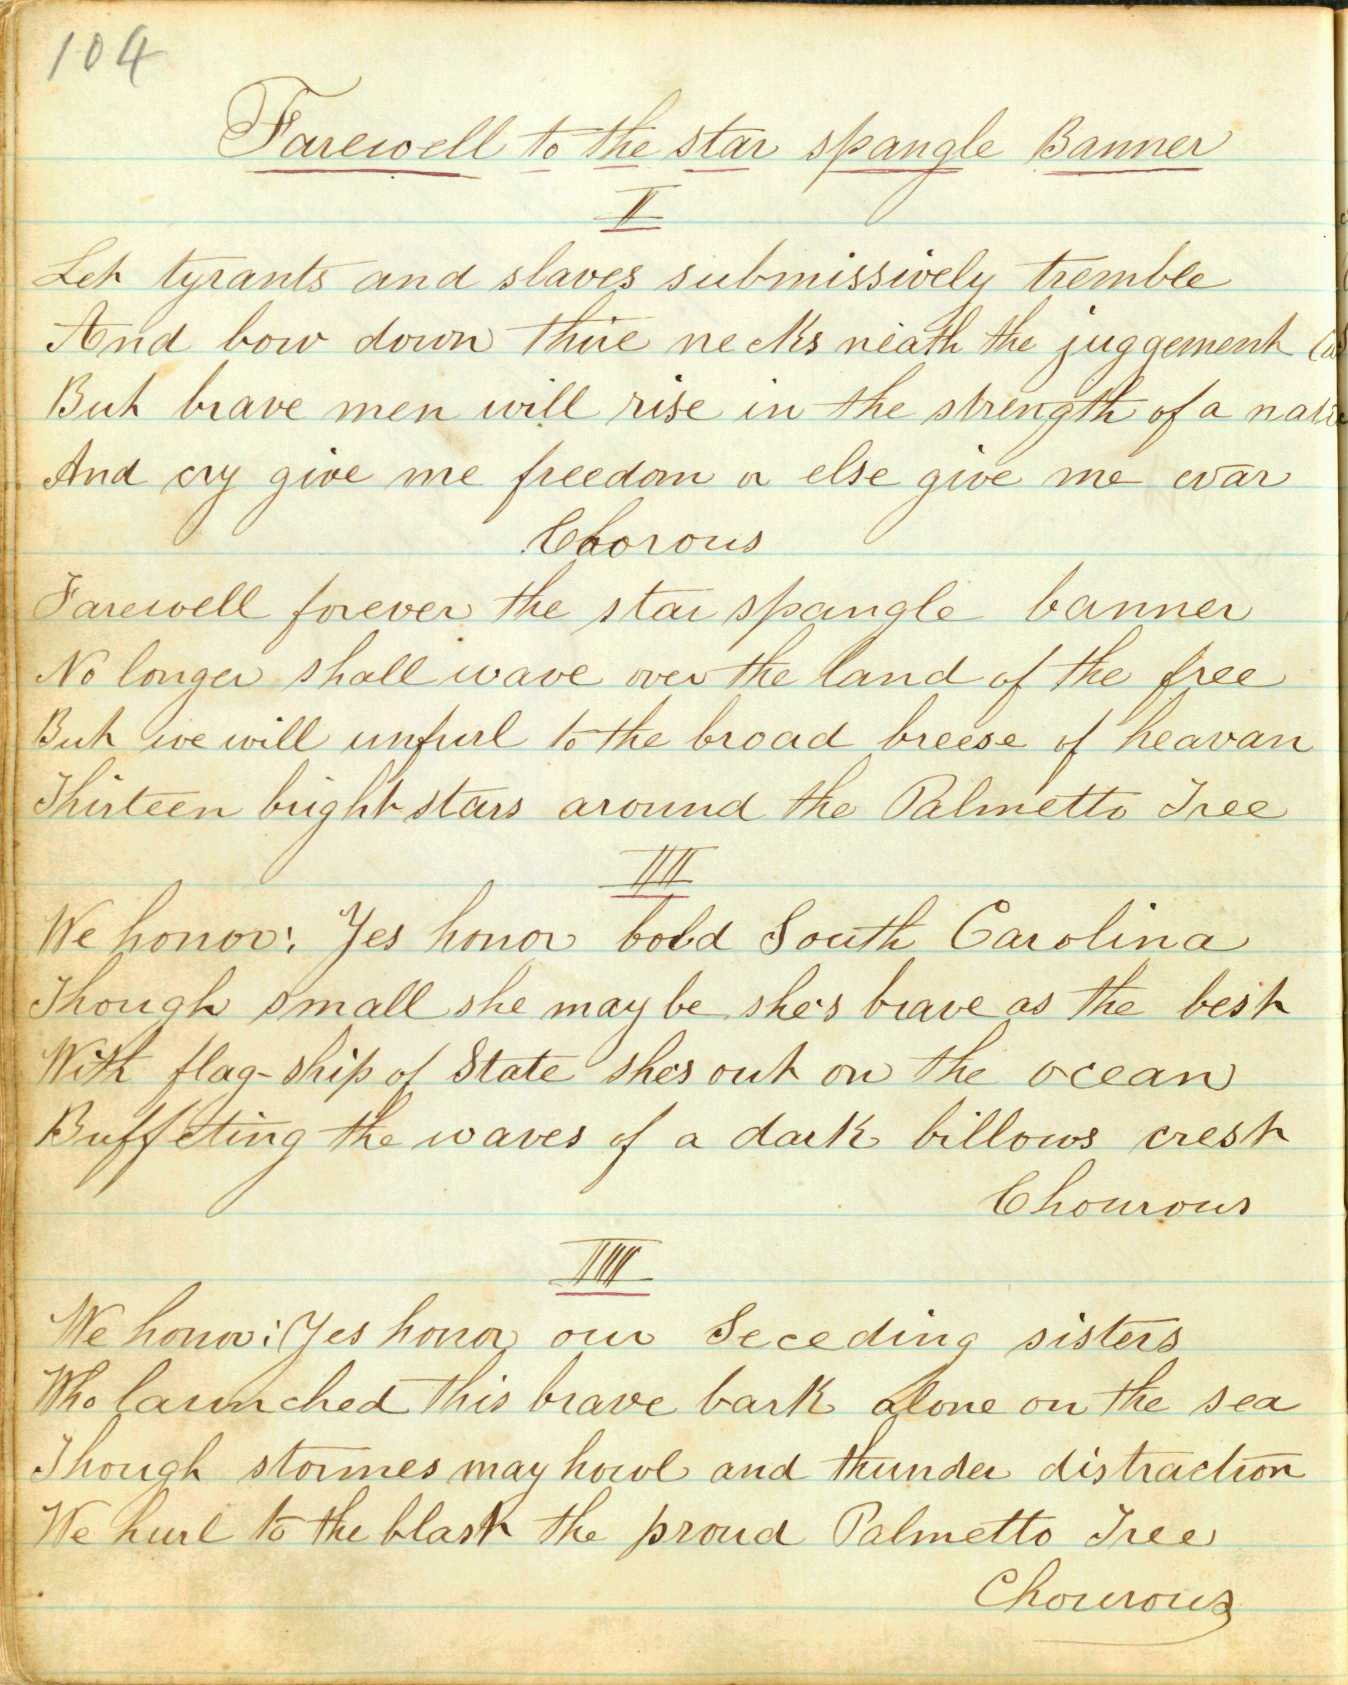 104
Farewell to the star spangle Banner
II
Let tyrants and slaves submissively tremble
And bow down thire necks neath the juggement
But brave men will rise in the strength of a
And cry give me freedom or else give me war
Chorous
Farewell forever the star spangle banner
No longer shall wave over the land of the free
But we will unfurl to the broad breese of heavan
Thirteen bright stars around the Palmetto Tree
III
We honor: Yes honor bold South Carolina
Though small she may be she's brave as the best
With flag-ship of State she's out on the ocean
Buffeting the waves of a dark billows crest
Chourous
IIII
We honor: Yes honor our Seceding sisters
Who launched this brave bark alone on the sea
Though stormes may howl and thunder distraction
We hurl to the blast the proud Palmetto Tree
Chourous